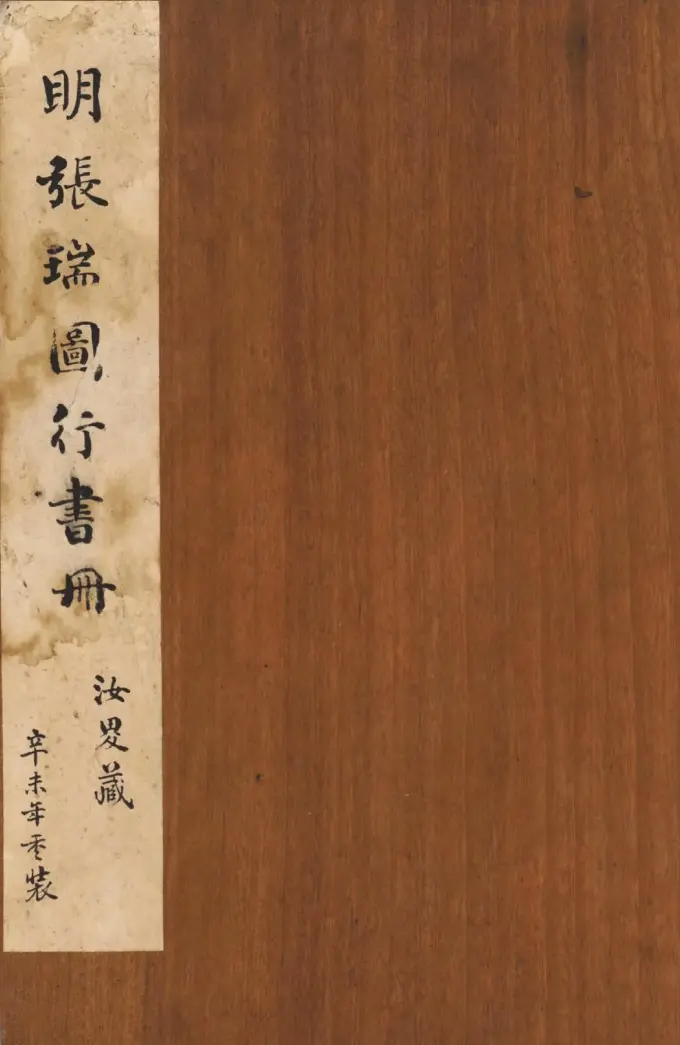 明張瑞圖行書冊
汝㽙藏
辛未年重裝